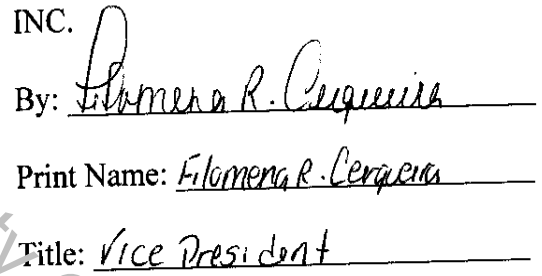 INC.
By: Filomena R. Cerqueira
Print Name: Filomena R. Cerqueira
Title: Vice President